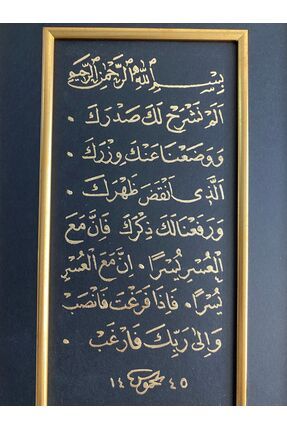 بِسْمِ اللهِ الرَّحْمٰنِ الرَّحِيمِ
اَلَمْ نَشْرَحْ لَكَ صَدْرَكَ •
وَوَضَعْنَا عَنْكَ وِزْرَكَ •
اَلَّذٖى اَنْقَضَ ظَهْرَكَ •
وَرَفَعْنَا لَكَ ذِكْرَكَ فَاِنَّ مَعَ
الْعُسْرِ يُسْرًا • اِنَّ مَعَ الْعُسْرِ
يُسْرًا • فَاِذَا فَرَغْتَ فَانْصَبْ
وَاِلٰى رَبِّكَ فَارْغَبْ •
١٤ ٤٥